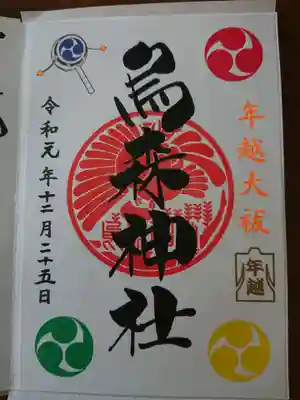 年越大祓
年越
烏森神社
令和元年十二月二十五日